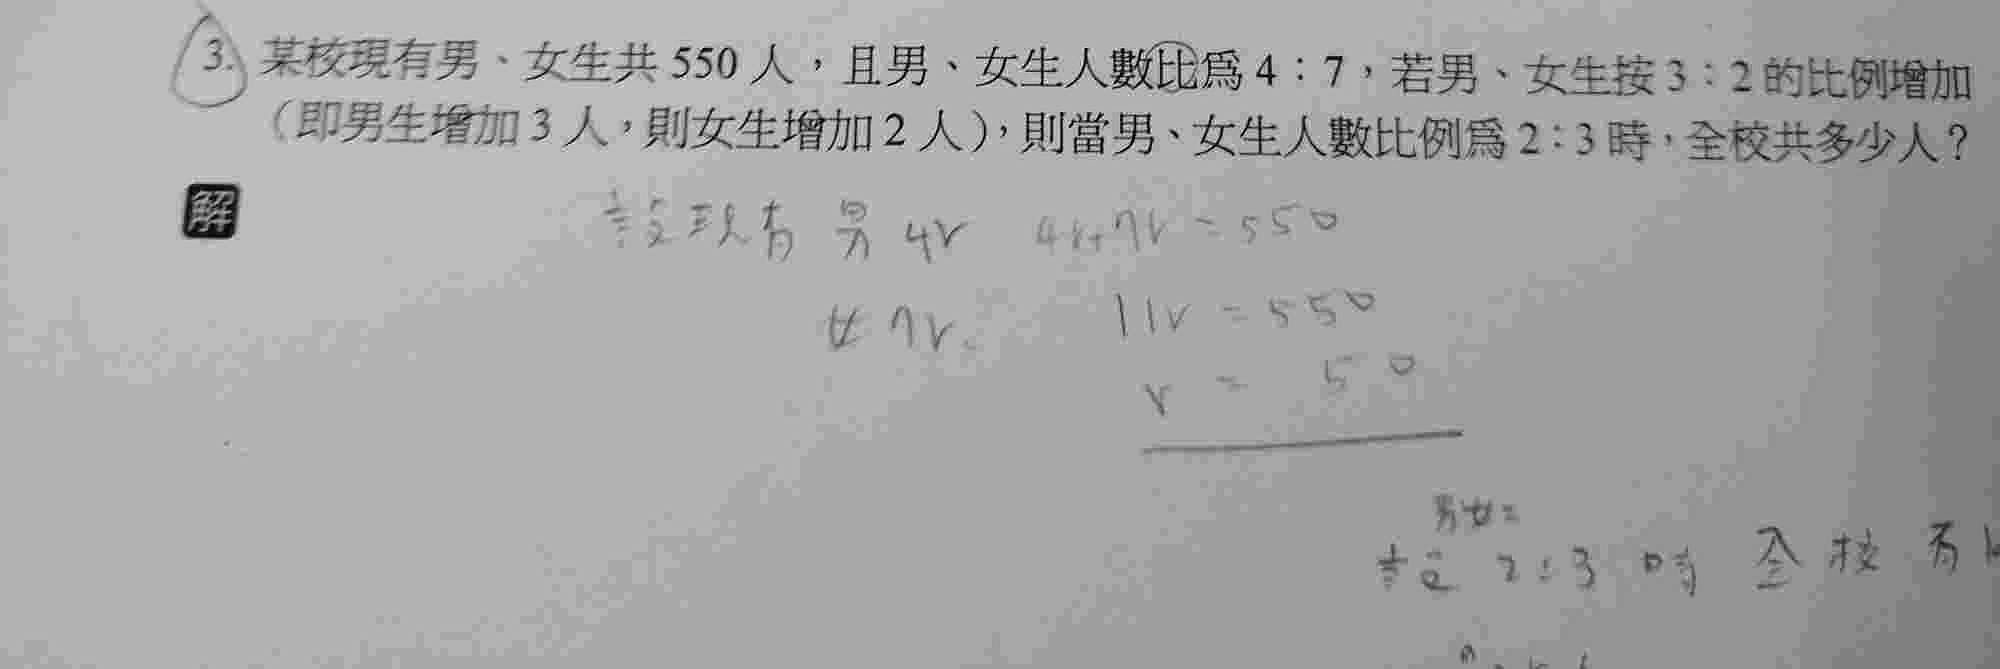 3. 某校現有男、女生共 550 人，且男、女生人數比為 4：7，若男、女生按 3：2 的比例增加
（即男生增加 3 人，則女生增加 2 人），則當男、女生人數比例為 2：3 時，全校共多少人？
解
設現有 男 4r 4r+7r = 550
女 7r. 11r = 550
r = 50
男女=
設 2:3 時 全校 有